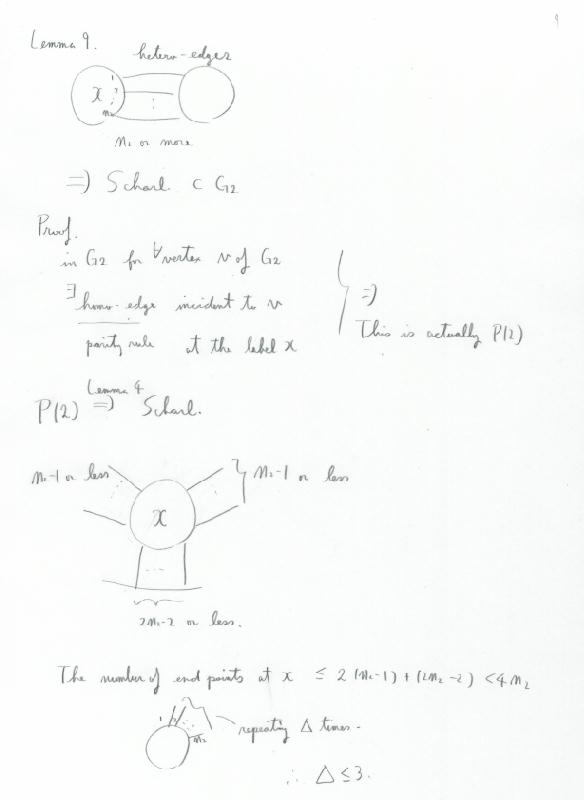 9
Lemma 9.
hetero-edges
1
x
n₂
n₂ or more
⇒) Scharl. ⊂ G2
Proof.
in G2 for ∀vertex v of G2
∃ homo-edge incident to v
⇒)
parity rule at the label x
This is actually P(2)
Lemma 4
P(2) ⇒ Scharl.
n₂-1 or less
n₂-1 or less
x
...
2n₂-2 or less.
The number of end points at x ≤ 2(n₂-1)+(2n₂-2) < 4n₂
1
n₂
repeating Δ times.
∴ Δ ≤ 3.